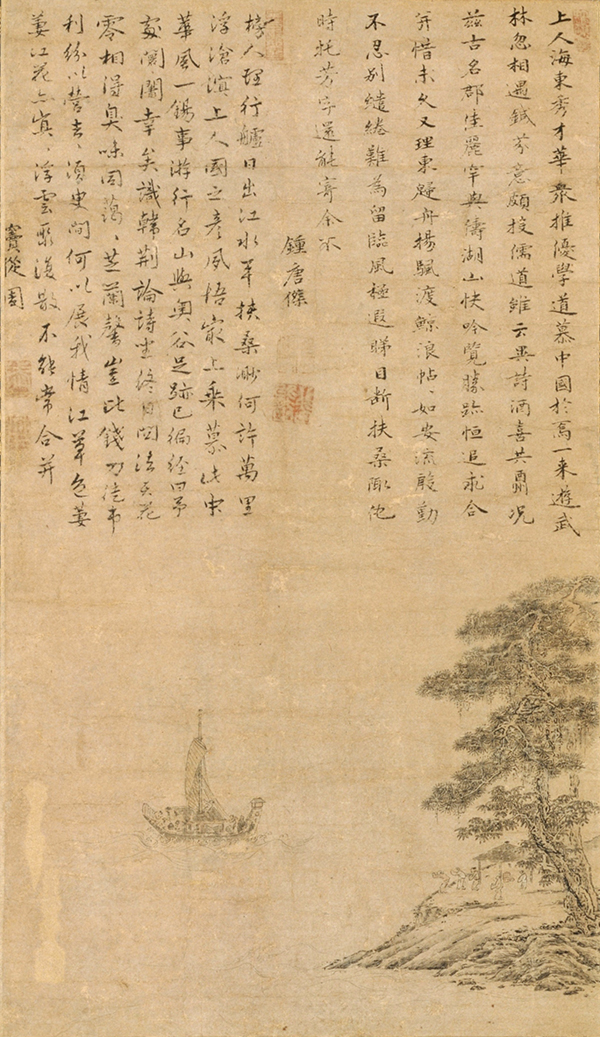 上人海東秀才華衆推優學道慕中國於焉一来遊武
林忽相遇鍼芥意頗投儒道雖云異詩酒喜共酬况
兹古名郡佳麗罕與儔湖山快吟覽勝跡恒追求合
并惜未久又理東歸舟揚颿渡鯨浪帖、如安流殷勤
不忍别繾綣難為留臨風極遐睇目断扶桑陬他
時托芳字還能寄余不
鍾唐傑
榜人理行艫日出江水平扶桑眇何許萬里
浮滄溟上人國之彦夙悟最上乘慕此中
華風一錫事游行名山與奥谷足跡已徧經曰予
處闤闠幸矣識韓荆論詩坐終日聞法天花
零相得臭味同藹、芝蘭馨豈比錢刀徒市
利紛以營去、須臾間何以展我情江草色萋
萋江花亦冥、浮雲聚復散不能常合并
竇從周